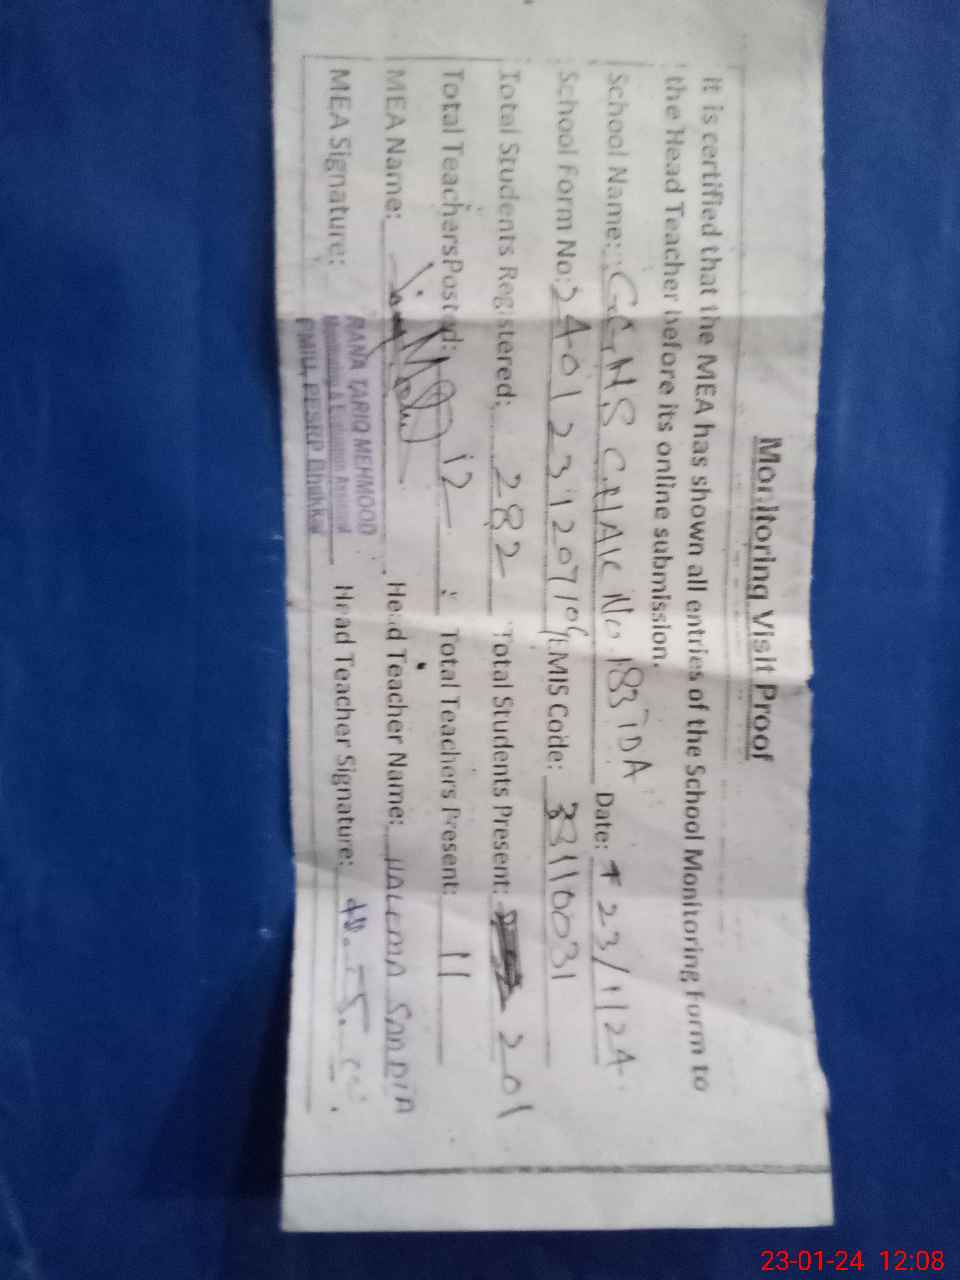 Monitoring Visit Proof
It is certified that the MEA has shown all entries of the School Monitoring Form to
the Head Teacher before its online submission.
School Name: GGHS CHAK No. 183 TDA Date: 23/1/24
School Form No: 2401231207109 EMIS Code: 33110031
Total Students Registered: 282 Total Students Present: 201
Total Teachers Posted: 12 Total Teachers Present: 11
MEA Name: Head Teacher Name: HALEMA SADDIA
MEA Signature: Head Teacher Signature:
RANA TARIQ MEHMOOD
Monitoring & Evaluation Assistant
PMIU, PESRP Bhakkar
23-01-24 12:08